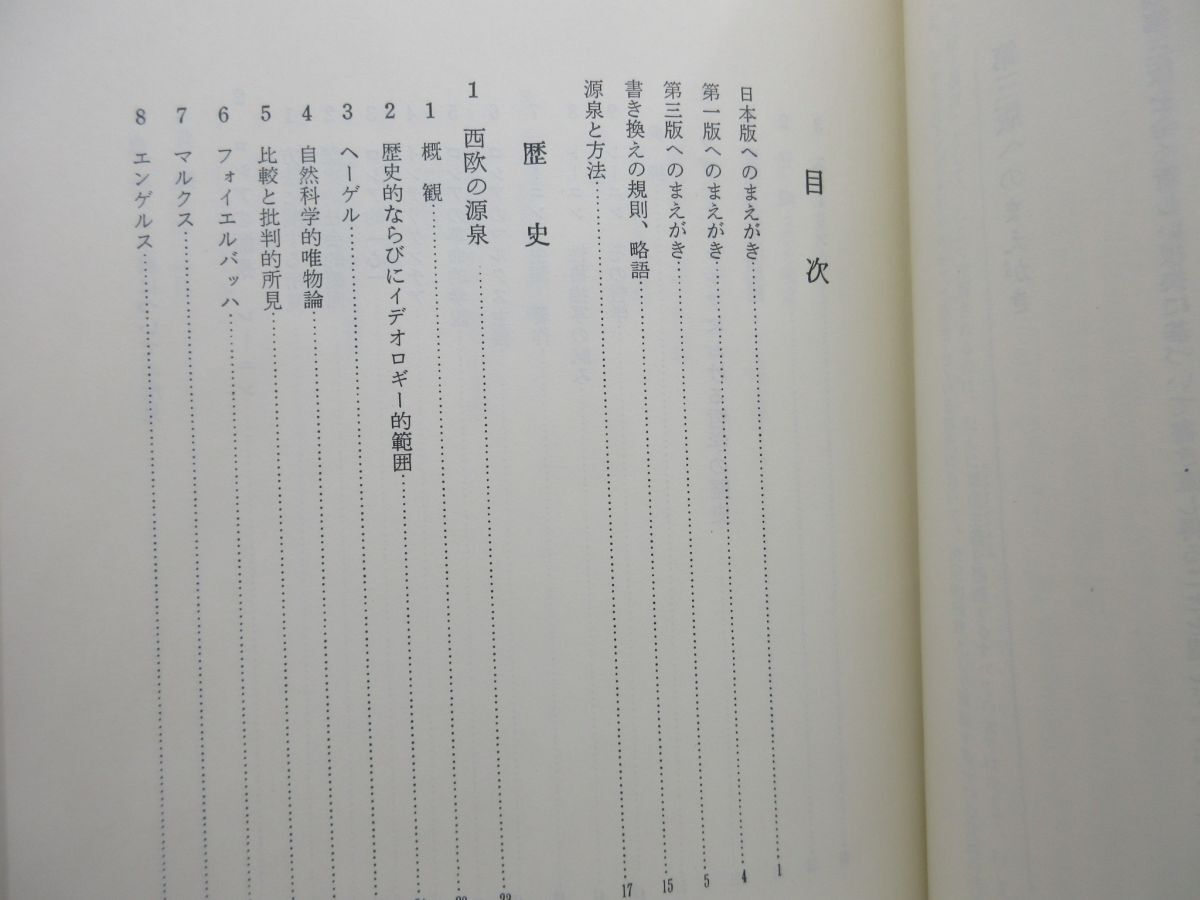 目次
日本版へのまえがき 1
第一版へのまえがき 4
第三版へのまえがき 5
書き換えの規則、略語 15
源泉と方法 17
歴史
1 西欧の源泉
1 概観
2 歴史的ならびにイデオロギー的範囲
3 ヘーゲル
4 自然科学的唯物論
5 比較と批判的所見
6 フォイエルバッハ
7 マルクス
8 エンゲルス